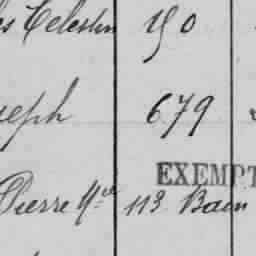 es Celestin 150
seph 679
EXEMPT
Pierre Mce 113 Bain